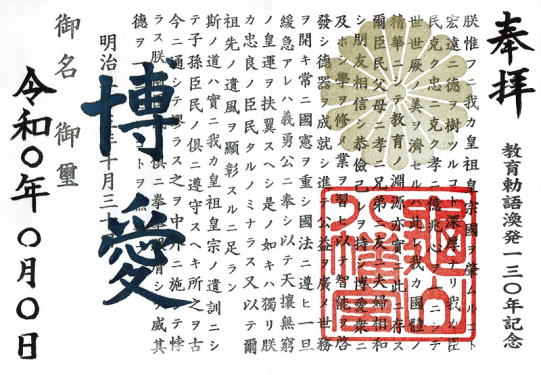 奉拝
教育勅語渙発一三〇年記念
朕惟フニ我カ皇祖皇宗國ヲ肇ムルコト
宏遠ニ德ヲ樹ツルコト深厚ナリ我カ臣
民克ク忠ニ克ク孝ニ億兆心ヲ一ニシテ
世世厥ノ美ヲ濟セルハ此レ我カ國體ノ
精華ニシテ教育ノ淵源亦實ニ此ニ存ス
爾臣民父母ニ孝ニ兄弟ニ友ニ夫婦相和
シ朋友相信シ恭儉己レヲ持シ博愛衆ニ
及ホシ學ヲ修メ業ヲ習ヒ以テ智能ヲ啓
發シ德器ヲ成就シ進テ公益ヲ廣メ世務
ヲ開キ常ニ國憲ヲ重シ國法ニ遵ヒ一旦
緩急アレハ義勇公ニ奉シ以テ天壤無窮
ノ皇運ヲ扶翼スヘシ是ノ如キハ獨リ朕
カ忠良ノ臣民タルノミナラス又以テ爾
祖先ノ遺風ヲ顯彰スルニ足ラン
斯ノ道ハ實ニ我カ皇祖皇宗ノ遺訓ニシ
テ子孫臣民ノ俱ニ遵守スヘキ所之ヲ古
今ニ通シテ謬ラス之ヲ中外ニ施シテ悖
ラス朕 俱ニ拳 膺シ 咸其
德ヲ一
明治 十月三十
博愛
御名 御璽
令和〇年 〇月〇日
亀山八幡宮